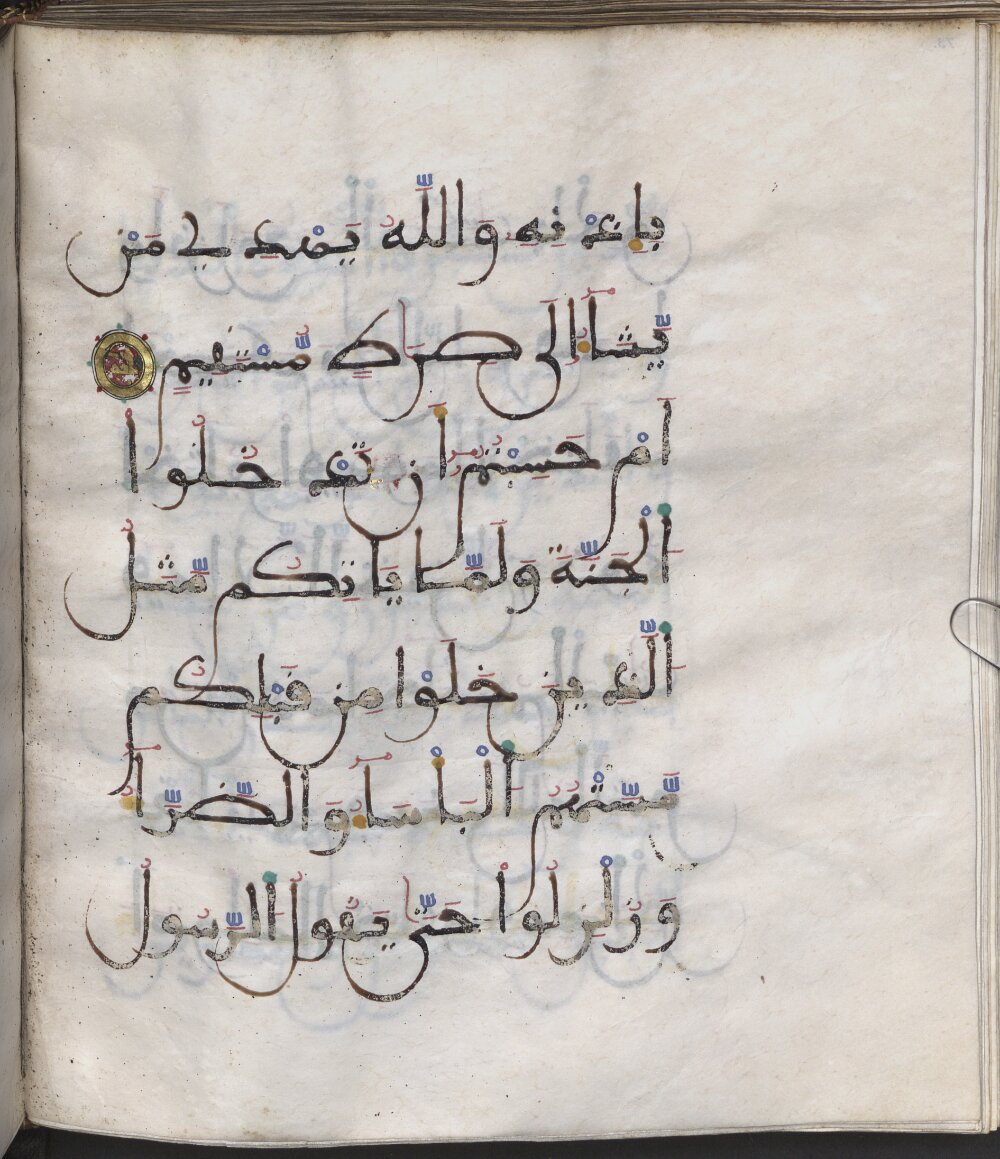 بِإِذْنِهِ وَاللَّهُ يَهْدِي مَنْ
يَّشَآءُ إِلَى صِرَٰطٍ مُّسْتَقِيمٍ
أَمْ حَسِبْتُمُ أَن تَدْخُلُوا
الْجَنَّةَ وَلَمَّا يَأْتِكُم مَّثَلُ
الَّذِينَ خَلَوْا مِن قَبْلِكُم
مَّسَّتْهُمُ الْبَأْسَآءُ وَالضَّرَّآءُ
وَزُلْزِلُوا حَتَّىٰ يَقُولُ الرَّسُولُ